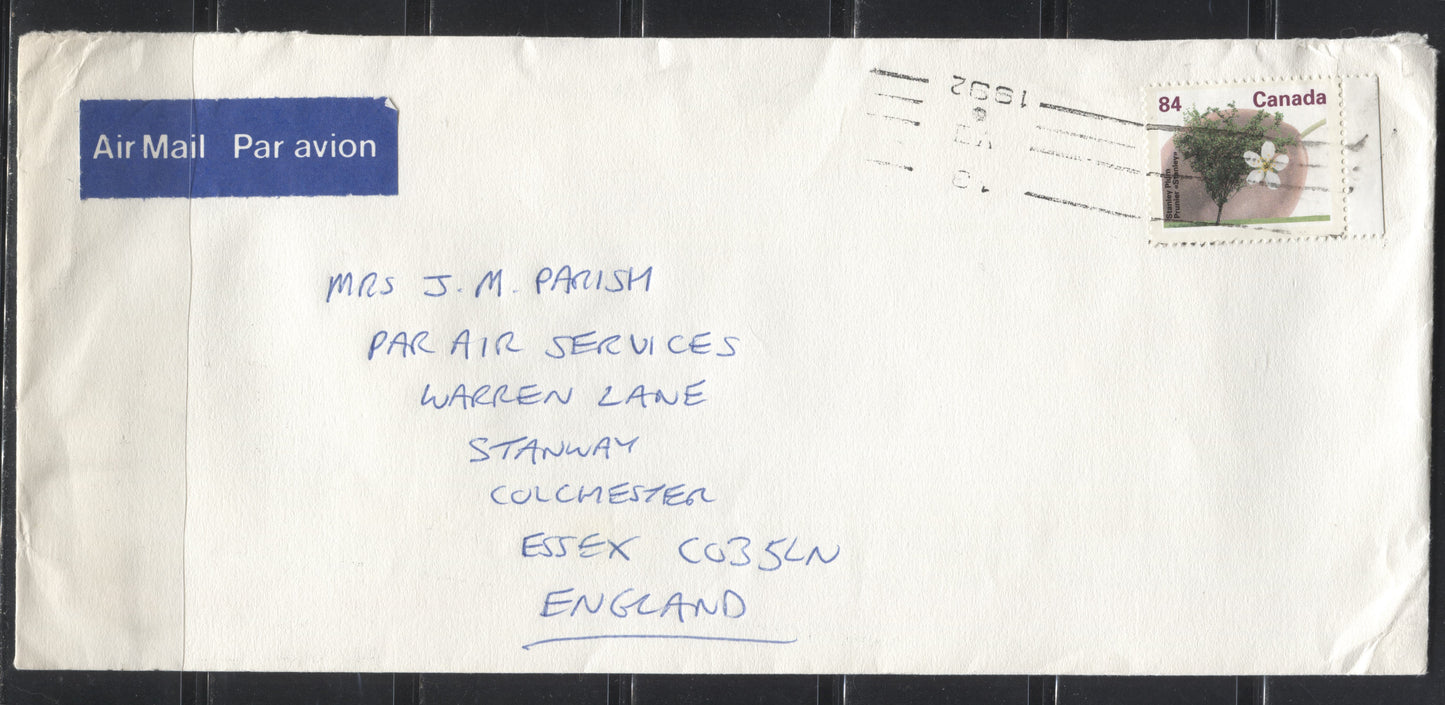 Air Mail Par avion
1992
VI
13
84 Canada
Stanley Plum
Prunier «Stanley»
MRS J. M. PARISH
PAR AIR SERVICES
WARREN LANE
STANWAY
COLCHESTER
ESSEX CO3 5LN
ENGLAND